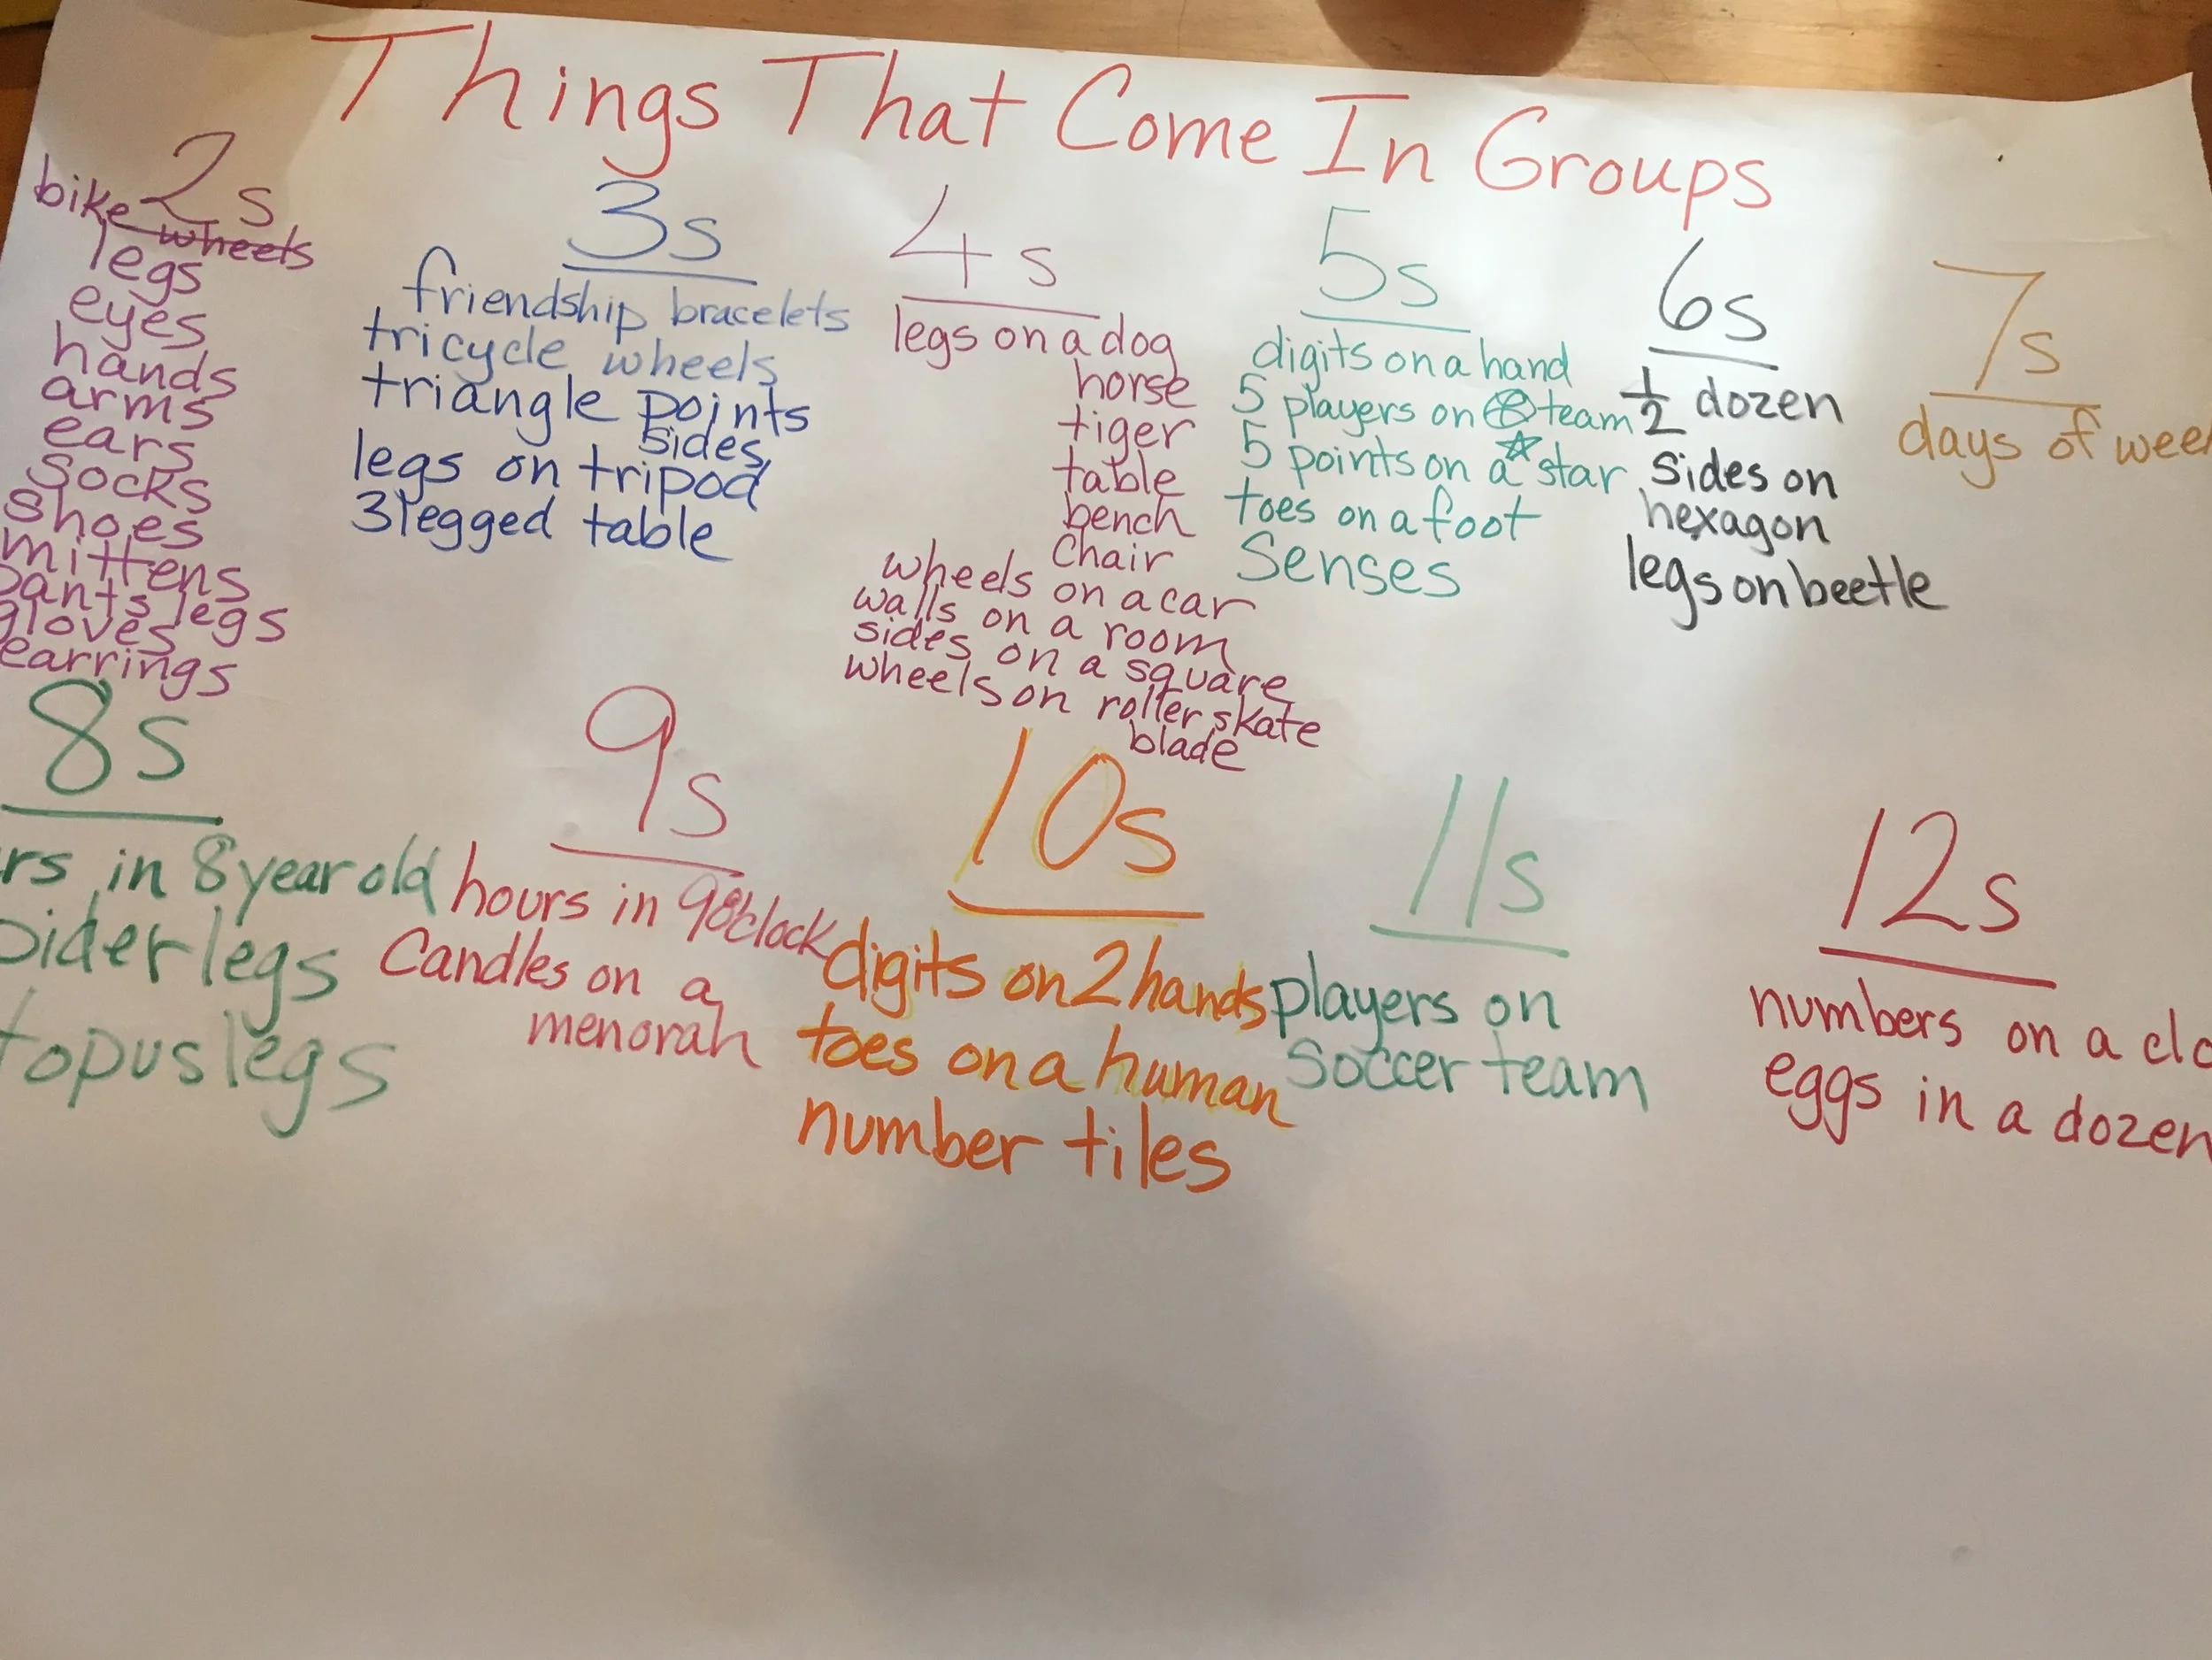 Things That Come In Groups
2s
bike wheels
legs
eyes
hands
arms
ears
socks
shoes
mittens
pants legs
gloves
earrings
3s
friendship bracelets
tricycle wheels
triangle points
sides
legs on tripod
3 legged table
4s
legs on a dog
horse
tiger
table
bench
chair
wheels on a car
walls on a room
sides on a square
wheels on roller skate
blade
5s
digits on a hand
5 players on team
5 points on a star
toes on a foot
Senses
6s
1/2 dozen
sides on
hexagon
legs on beetle
7s
days of wee
8s
rs in 8 year old
pider legs
topus legs
9s
hours in 9 o'clock
Candles on a
menorah
10s
digits on 2 hands
toes on a human
number tiles
11s
players on
Soccer team
12s
numbers on a clo
eggs in a dozen